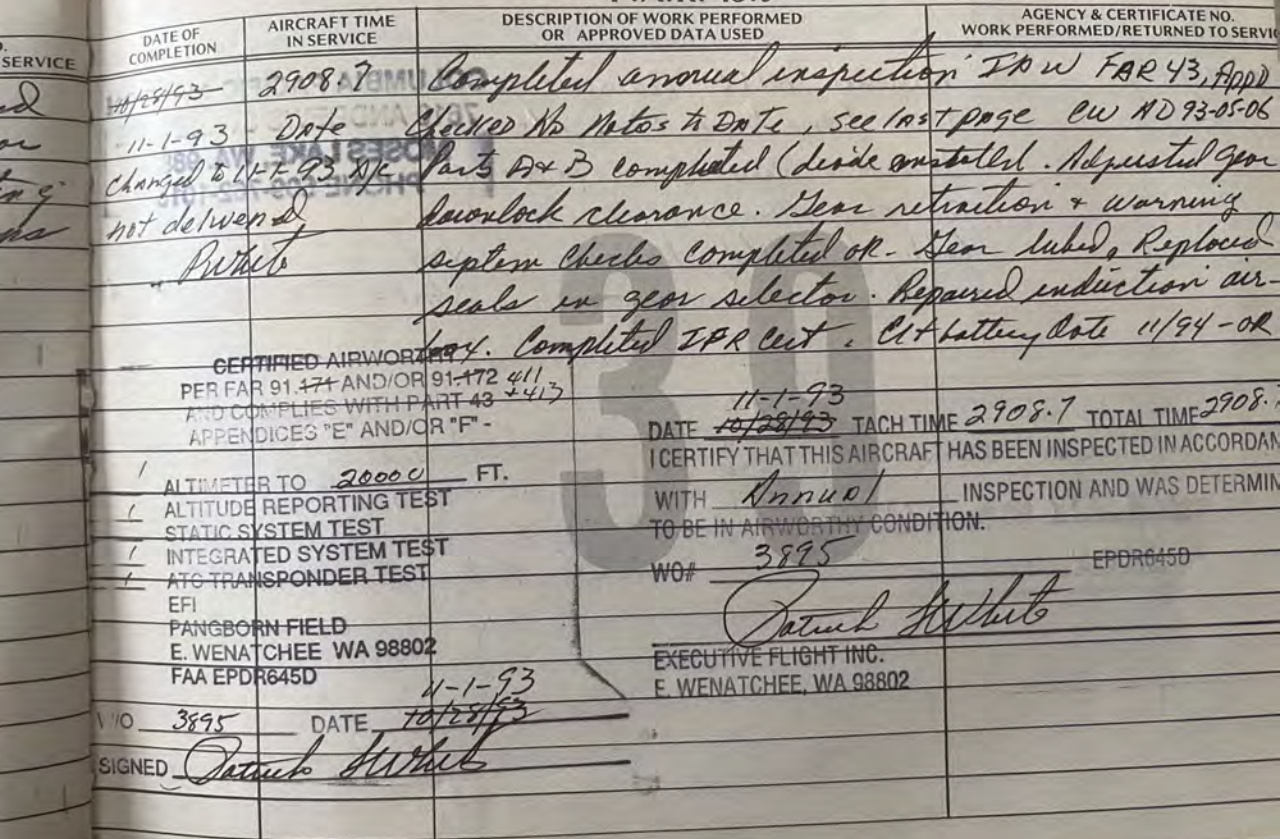 SERVICE
DATE OF COMPLETION
AIRCRAFT TIME IN SERVICE
DESCRIPTION OF WORK PERFORMED OR APPROVED DATA USED
AGENCY & CERTIFICATE NO. WORK PERFORMED/RETURNED TO SERVI
10/28/93 2908.7 Completed annual inspection IAW FAR 43, App D
11-1-93 Date Checked No Notes to Date, see last page CW AD 93-05-06
changed to 11-1-93 A/C Parts A & B completed (diode installed. Adjusted gear
not delivered downlock clearance. Gear retraction & warning
PWhite system checks completed OK - Gear lubed, Replaced
seals in gear selector. Repaired induction air-
box. Completed IFR cert. Elt battery Date 11/94 - OK
30
CERTIFIED AIRWORTHY
PER FAR 91.171 AND/OR 91.172 411
AND COMPLIES WITH PART 43 + 413
APPENDICES "E" AND/OR "F" -
/ ALTIMETER TO 20000 FT.
/ ALTITUDE REPORTING TEST
STATIC SYSTEM TEST
/ INTEGRATED SYSTEM TEST
/ ATC TRANSPONDER TEST
EFI
PANGBORN FIELD
E. WENATCHEE WA 98802
FAA EPDR645D
11-1-93
W/O 3895 DATE 10/28/93
SIGNED Patrick SWhite
11-1-93
DATE 10/28/93 TACH TIME 2908.7 TOTAL TIME 2908.
I CERTIFY THAT THIS AIRCRAFT HAS BEEN INSPECTED IN ACCORDAN
WITH Annual INSPECTION AND WAS DETERMIN
TO BE IN AIRWORTHY CONDITION.
WO# 3895 EPDR645D
Patrick SWhite
EXECUTIVE FLIGHT INC.
E. WENATCHEE, WA 98802